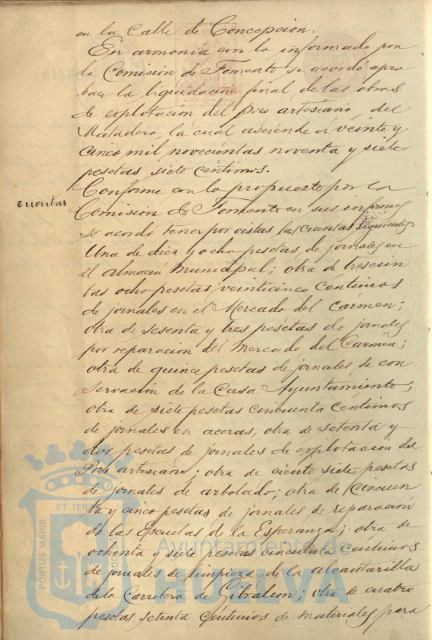 en la Calle de Concepcion.
En armonia con lo informado por
la Comisión de Fomento se acordó apro
bar la liquidacion final de las obras
de explotacion del Pozo artesiano del
Matadero, la cual asciende a veinte y
cinco mil novecientas noventa y siete
pesetas siete centimos.
Cuentas
Conforme con lo propuesto por la
Comision de Fomento en sus informes
se acordó tener por vistas las cuentas siguientes:
Una de diez y ocho pesetas de jornales en
el almacen municipal; otra de trescien
tas ocho pesetas veinticinco centimos
de jornales en el Mercado del Carmen;
otra de sesenta y tres pesetas de jornales
por reparacion del Mercado del Carmen;
otra de quince pesetas de jornales de con
servacion de la Casa Ayuntamiento;
otra de siete pesetas cincuenta centimos
de jornales en aceras; otra de setenta y
dos pesetas de jornales de explotacion del
Pozo artesiano; otra de ciento siete pesetas
de jornales de arbolado; otra de cincuen
ta y cinco pesetas de jornales de reparacion
de las Escuelas de la Esperanza; otra de
ochenta y siete pesetas cincuenta centimos
de jornales de limpieza de la alcantarilla
de la Carretera de Gibraleon; otra de cuatro
pesetas setenta centimos de materiales para
PORTUS MARIS ET TERRÆ
Ayuntamiento de
HUELVA